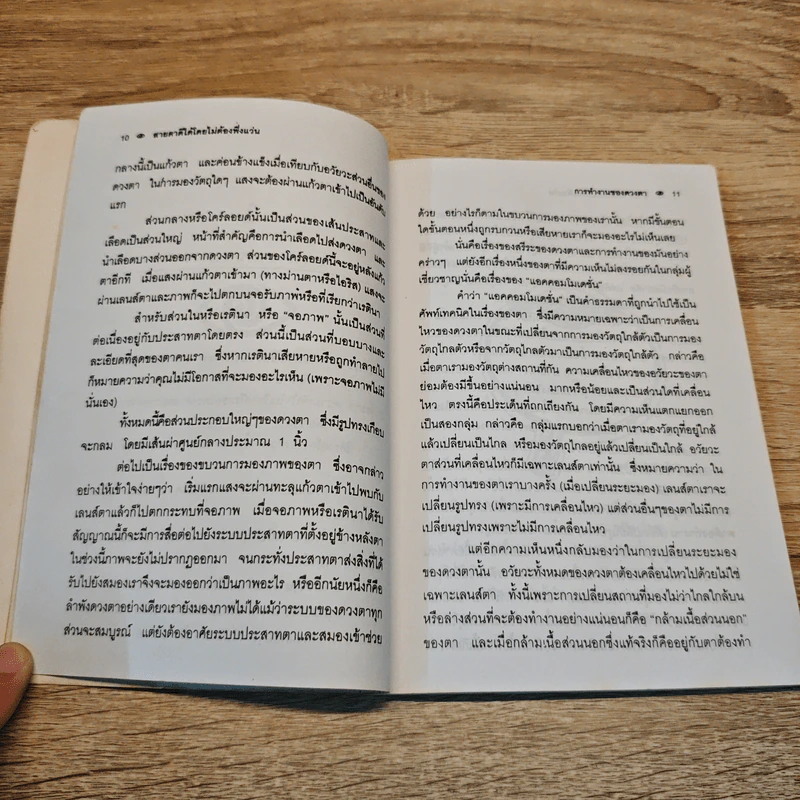 10 สายตาดีได้โดยไม่ต้องพึ่งแว่น
กลางนี้เป็นแก้วตา และค่อนข้างแข็งเมื่อเทียบกับอวัยวะส่วนอื่นของ
ดวงตา ในการมองวัตถุใดๆ แสงจะต้องผ่านแก้วตาเข้าไปเป็นอันดับ
แรก
ส่วนกลางหรือโคร์ลอยด์นั้นเป็นส่วนของเส้นประสาทและ
เลือดเป็นส่วนใหญ่ หน้าที่สำคัญคือการนำเลือดไปส่งดวงตา และ
นำเลือดบางส่วนออกจากดวงตา ส่วนของโคร์ลอยด์นี้จะอยู่หลังแก้ว
ตาอีกที เมื่อแสงผ่านแก้วตาเข้ามา (ทางม่านตาหรือไอริส) แสงจะ
ผ่านเลนส์ตาและภาพก็จะไปตกบนจอรับภาพหรือที่เรียกว่าเรตินา
สำหรับส่วนในหรือเรตินา หรือ “จอภาพ” นั้นเป็นส่วนที่
ต่อเนื่องอยู่กับประสาทตาโดยตรง ส่วนนี้เป็นส่วนที่บอบบางและ
ละเอียดที่สุดของตาคนเรา ซึ่งหากเรตินาเสียหายหรือถูกทำลายไป
ก็หมายความว่าคุณไม่มีโอกาสที่จะมองอะไรเห็น (เพราะจอภาพไม่มี
นั่นเอง)
ทั้งหมดนี้คือส่วนประกอบใหญ่ๆของดวงตา ซึ่งมีรูปทรงเกือบ
จะกลม โดยมีเส้นผ่าศูนย์กลางประมาณ 1 นิ้ว
ต่อไปเป็นเรื่องของขบวนการมองภาพของตา ซึ่งอาจกล่าว
อย่างให้เข้าใจง่ายๆว่า เริ่มแรกแสงจะผ่านทะลุแก้วตาเข้าไปพบกับ
เลนส์ตาแล้วก็ไปตกกระทบที่จอภาพ เมื่อจอภาพหรือเรตินาได้รับ
สัญญาณนี้ก็จะมีการสื่อต่อไปยังระบบประสาทตาที่ตั้งอยู่ข้างหลังตา
ในช่วงนี้ภาพจะยังไม่ปรากฏออกมา จนกระทั่งประสาทตาส่งสิ่งที่ได้
รับไปยังสมองเราจึงจะมองออกว่าเป็นภาพอะไร หรืออีกนัยหนึ่งก็คือ
ลำพังดวงตาอย่างเดียวเรายังมองภาพไม่ได้แม้ว่าระบบของดวงตาทุก
ส่วนจะสมบูรณ์ แต่ยังต้องอาศัยระบบประสาทตาและสมองเข้าช่วย
การทำงานของดวงตา 11
ด้วย อย่างไรก็ตามในขบวนการมองภาพของเรานั้น หากมีขั้นตอน
ใดขั้นตอนหนึ่งถูกรบกวนหรือเสียหายเราก็จะมองอะไรไม่เห็นเลย
นั่นคือเรื่องของสรีระของดวงตาและการทำงานของมันอย่าง
คร่าวๆ แต่ยังอีกเรื่องหนึ่งของตาที่มีความเห็นไม่ลงรอยกันในกลุ่มผู้
เชี่ยวชาญนั่นคือเรื่องของ “แอคคอมโมเดชั่น”
คำว่า “แอคคอมโมเดชั่น” เป็นคำธรรมดาที่ถูกนำไปใช้เป็น
ศัพท์เทคนิคในเรื่องของตา ซึ่งมีความหมายเฉพาะว่าเป็นการเคลื่อน
ไหวของดวงตาในขณะที่เปลี่ยนจากการมองวัตถุไกลตัวเป็นการมอง
วัตถุใกล้ตัวหรือจากวัตถุไกลตัวมาเป็นการมองวัตถุใกล้ตัว กล่าวคือ
เมื่อตาเรามองวัตถุต่างสถานที่กัน ความเคลื่อนไหวของอวัยวะของตา
ย่อมต้องมีขึ้นอย่างแน่นอน มากหรือน้อยและเป็นส่วนใดที่เคลื่อน
ไหว ตรงนี้คือประเด็นที่ถกเถียงกัน โดยมีความเห็นแตกแยกออก
เป็นสองกลุ่ม กล่าวคือ กลุ่มแรกบอกว่าเมื่อตาเรามองวัตถุที่อยู่ใกล้
แล้วเปลี่ยนเป็นไกล หรือมองวัตถุไกลอยู่แล้วเปลี่ยนเป็นใกล้ อวัยวะ
ตาส่วนที่เคลื่อนไหวก็มีเฉพาะเลนส์ตาเท่านั้น ซึ่งหมายความว่า ใน
การทำงานของตาเราบางครั้ง (เมื่อเปลี่ยนระยะมอง) เลนส์ตาเราจะ
เปลี่ยนรูปทรง (เพราะมีการเคลื่อนไหว) แต่ส่วนอื่นๆของตาไม่มีการ
เปลี่ยนรูปทรงเพราะไม่มีการเคลื่อนไหว
แต่อีกความเห็นหนึ่งกลับมองว่าในการเปลี่ยนระยะมอง
ของดวงตานั้น อวัยวะทั้งหมดของดวงตาต้องเคลื่อนไหวไปด้วยไม่ใช่
เฉพาะเลนส์ตา ทั้งนี้เพราะการเปลี่ยนสถานที่มองไม่ว่าไกลใกล้บน
หรือล่างส่วนที่จะต้องทำงานอย่างแน่นอนก็คือ “กล้ามเนื้อส่วนนอก”
ของตา และเมื่อกล้ามเนื้อส่วนนอกซึ่งแท้จริงก็คืออยู่กับตาต้องทำ